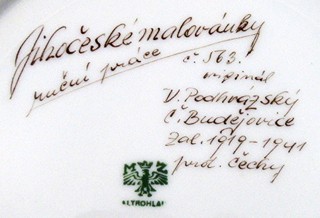 Jihočeské malovánky
ruční práce
č. 563.
originál
V. Podhrázský
Č. Budějovice
zal. 1919-1941
prot. Čechy
M Z
ALTROHLAU